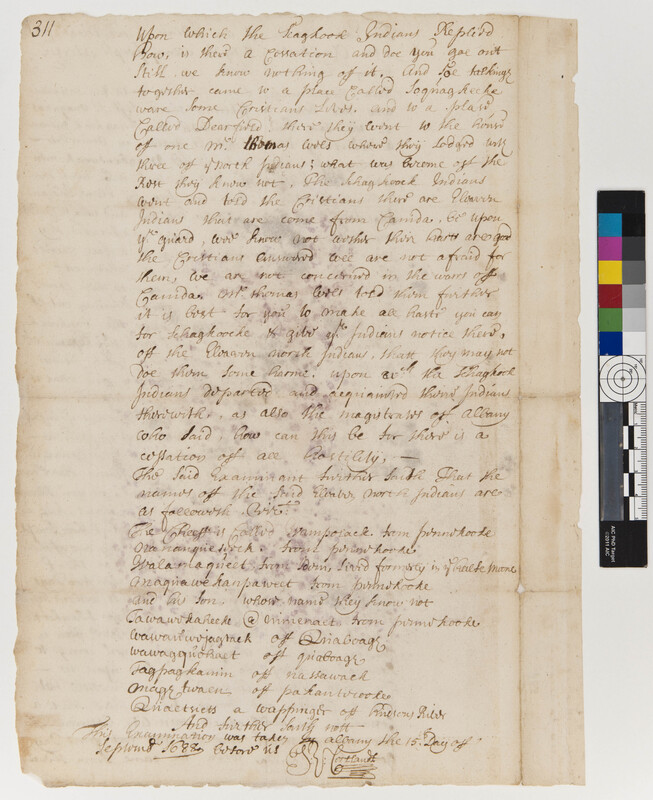 311
Upon which the Skaghook Indians Replied
How, is there a Cessation and doe you goe out
Still, we know nothing of it; And soe talking
together came to a place Called Soquagheeke
ware Some Cristians Lives. and to a place
Called Dearfield, there they went to the house
off one Mr. thomas wels where they Lodged with
three off ye North Indians; what was become off the
Rest they know not. The Skaghkook Indians
went and told the Cristians there are Eleaven
Indians that are come from Canida, be upon
yr. guard, wee know not wether their harts are good
the Cristians answered wee are not afraid for
them, we are not concerned in the warrs off
Canida. Mr. thomas wels told them further
it is best for you to make all haste you can
for Skaghkooke & give ye Indians notice there,
off the Eleaven north Indians, thatt they may not
doe them Some harme; upon wch. the Skaghkook
Indians departed and acquainted there Indians
therewith, as also the magistrates off Albany
who Said, how can this be for there is a
cessation off all hostility, —
The Said Examinant further Saith That the
names off the Said Eleaven north Indians are
as followeth. Vizt.
The Cheeff is Called Wampojack from pennekooke
from pennekooke
from lived formerly in
from pennekooke
and his Son, whose name they know not
@ from pennekooke
off Quaboage
off quaboage
off nassawach
off pakantecooke
Quaetseits a wappinger off Hudsons River
And further Saith nott
This Examination was taken in albany the 15. Day off
Septembr 1688 before us
Cortlandt